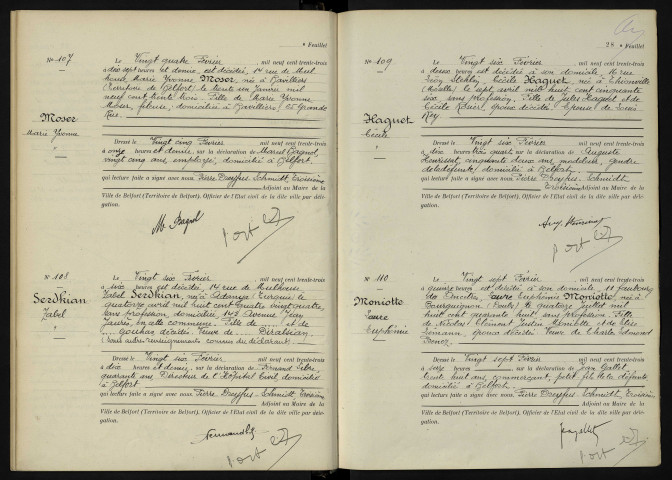 Feuillet
N° 107
Le Vingt quatre Février, mil neuf cent trente-trois
à dix sept heures et demie, est décédée, 14 rue de Mul
house, Marie Yvonne Moser, née à Bavilliers
(Territoire de Belfort) le trente un Janvier mil
neuf cent trente trois. Fille de Marie Yvonne
Moser, fileuse, domiciliée à Bavilliers, 26 Grande
Rue.
Moser
Marie Yvonne
Dressé le Vingt cinq Février, mil neuf cent trente-trois
à onze heures et demie, sur la déclaration de Marcel Bagnol
vingt cinq ans, employé, domicilié à Belfort,
qui lecture faite a signé avec nous Pierre Dreyfus-Schmidt, Troisième
Adjoint au Maire de la
Ville de Belfort (Territoire de Belfort), Officier de l'Etat civil de la dite ville par délé-
gation.
N° 108
Le Vingt six Février, mil neuf cent trente-trois
est décédée, 14 rue de Mulhouse
Zabel Serdkian, née à Turquie le
quatorze avril mil huit cent quatre vingt quatre,
sans profession, domiciliée, 149 Avenue Jean
Jaurès, en cette commune. Fille de ... et de
décédés. Veuve de
(Sans autre renseignements connus du déclarant)
Serdkian
Zabel
Dressé le Vingt six Février, mil neuf cent trente-trois
à dix heures et demie, sur la déclaration de Fernand
quarante ans, Directeur de l'Hôpital Civil, domicilié
à Belfort
qui lecture faite a signé avec nous Pierre Dreyfus-Schmidt, Troisième
Adjoint au Maire de la
Ville de Belfort (Territoire de Belfort), Officier de l'Etat civil de la dite ville par délé-
gation.
28 e Feuillet
N° 109
Le Vingt six Février, mil neuf cent trente-trois
à douze heures est décédée à son domicile, 16 rue
Cécile Haquet, née à Thionville
(Moselle) le sept avril mil huit cent cinquante
six, sans profession, Fille de Jules Haquet et de
Cécile époux décédés. Epouse de Louis
Rey
Haquet
Cécile
Dressé le Vingt six Février, mil neuf cent trente-trois
à dix heures trois quart sur la déclaration de Auguste
cinquante deux ans, modeleur, gendre
de la défunte, domicilié à Belfort,
qui lecture faite a signé avec nous Pierre Dreyfus-Schmidt
Troisième Adjoint au Maire de la
Ville de Belfort (Territoire de Belfort), Officier de l'Etat civil de la dite ville par délé-
gation.
N° 110
Le Vingt sept Février, mil neuf cent trente-trois
à quinze heures est décédée à son domicile, 11 faubourg
des Ancêtres, Laure Euphémie Moniotte, née à
Bourguignon (Doubs) le quatorze juillet mil
huit cent quarante huit, sans profession. Fille
de Nicolas Clément Justin Moniotte et de Elise
époux décédés. Veuve de Charles Edmond
Moniotte
Laure
Euphémie
Dressé le Vingt sept Février, mil neuf cent trente-trois
à seize heures, sur la déclaration de Jean Gallet
trente huit ans, commerçant, petit fils de la défunte,
domicilié à Belfort,
qui lecture faite a signé avec nous Pierre Dreyfus-Schmidt, Troisième
Adjoint au Maire de la
Ville de Belfort (Territoire de Belfort), Officier de l'Etat civil de la dite ville par délé-
gation.